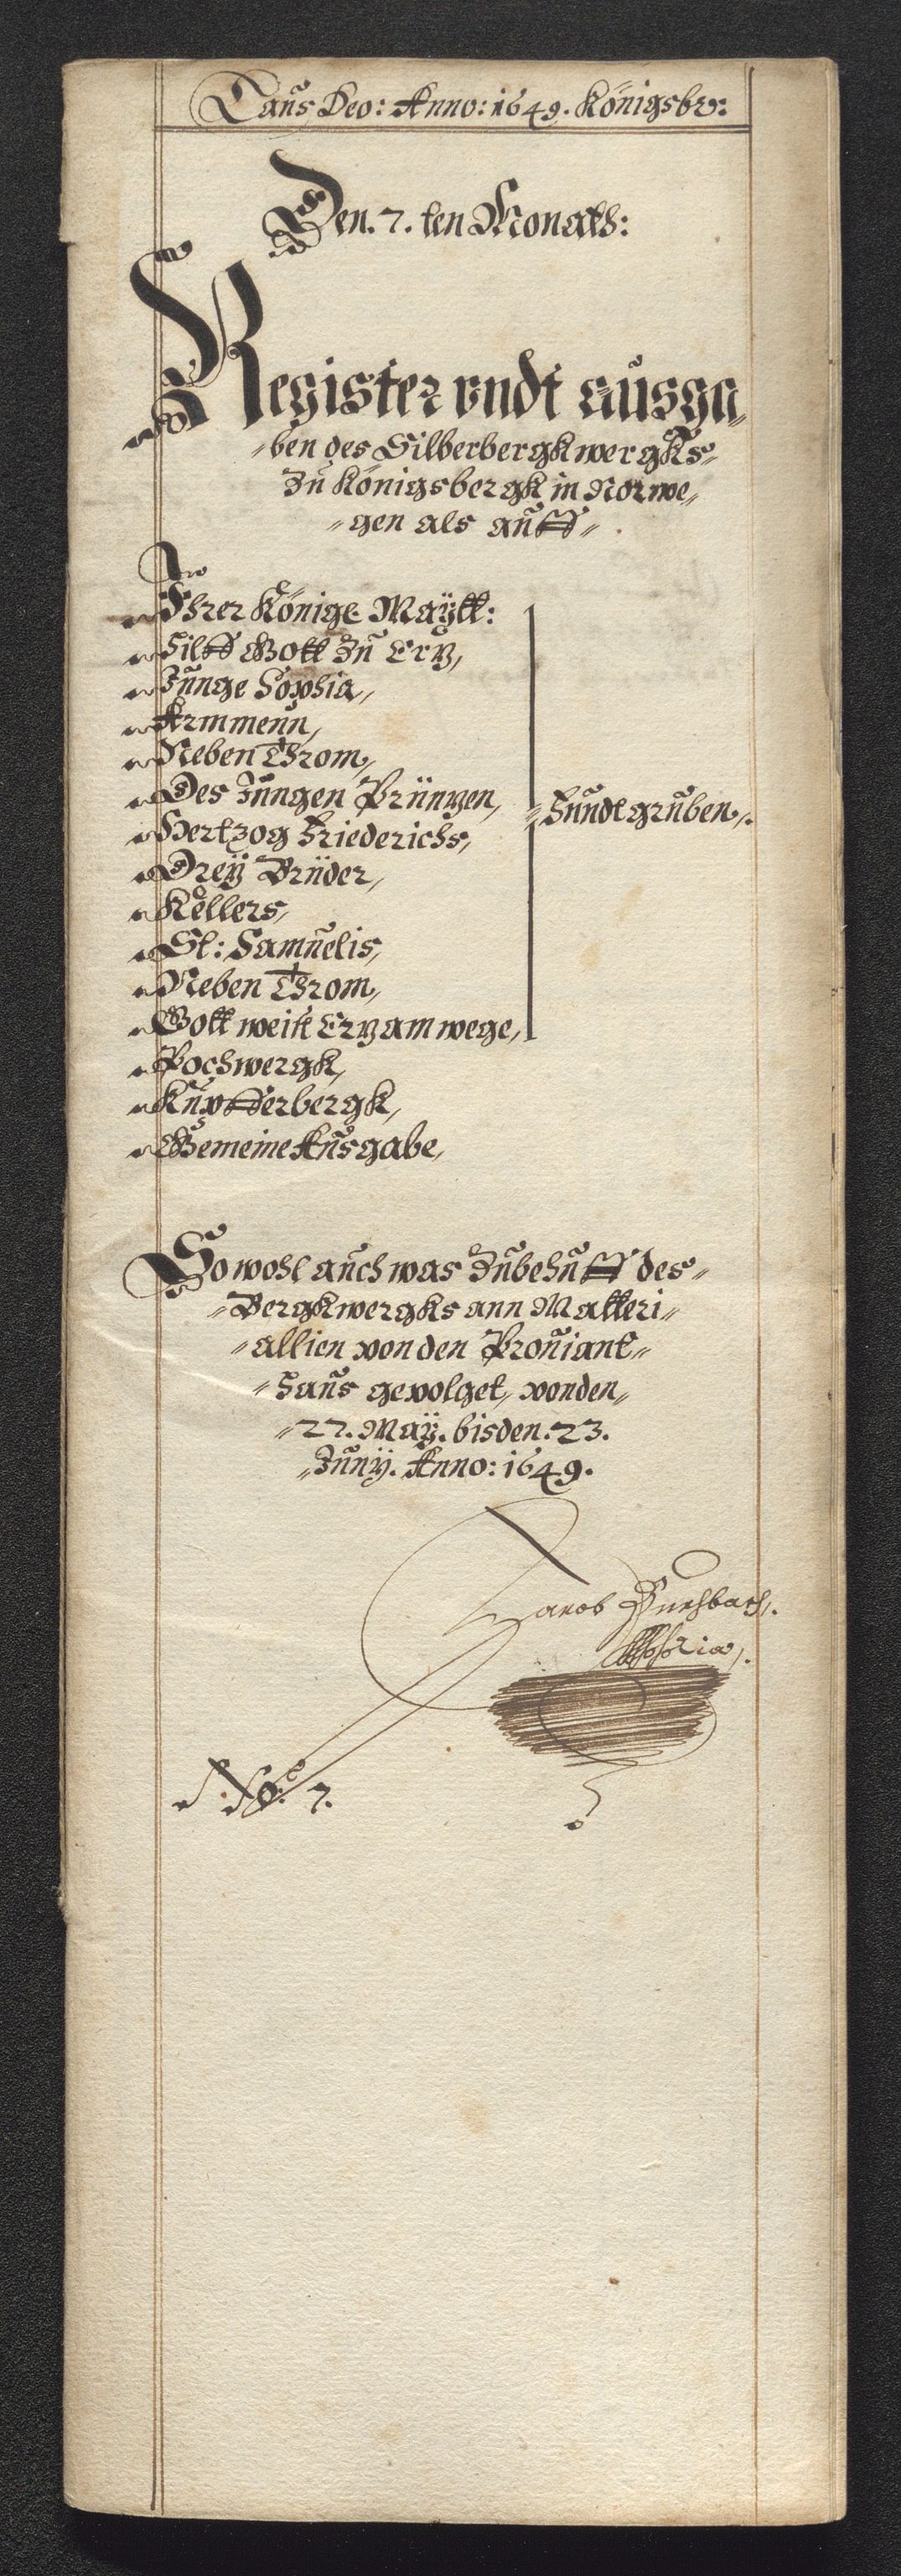 Laus Deo: Anno: 1649. Königsbr:
Den. 7. ten Monats:
Register undt ausga„
„ben des Silberbergkwergks„
Zu Königsbergk in Norwe„
„gen als auff„
Ihrer Könige Maÿtt:
Hilff Gott Zu Ertz,
Junge Sophia,
Armmenn,
Neben Throm,
Des Jungen Printzen,
Fundtgruben,
Hertzog Friederichs,
Dreÿ Brüder,
Kellers,
St: Samuelis,
Neben Throm,
Gott weist Ertz am wege,
Pochwergk,
Kupfferbergk,
Gemeine Ausgabe,
So wohl auch was Zubehuff des„
„Bergkwergks ann Matteri„
„allien von den Proviant„
„haus gevolget, vonden„
„22. Maÿ. bisden. 23.
„Junÿ. Anno: 1649.
Jacob
No: 7.